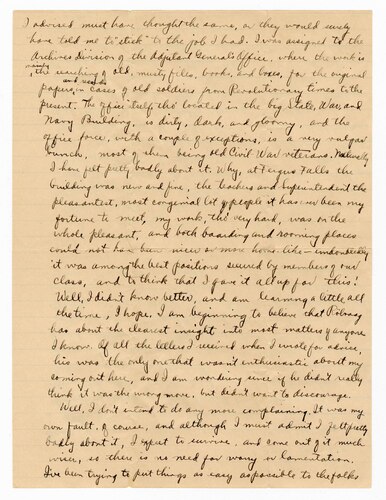 I advised must have thought the same, or they would surely
have told me to "stick" to the job I had. I was assigned to the
Archives Division of the Adjutant General's Office, where the work is
mainly
, the searching of old, musty files, books, and boxes, for the original
and records
papers, in cases of old soldiers from Revolutionary times to the
present. The office itself, tho' located in the big State, War and
Navy Building, is dirty, dark, and gloomy, and the
office force, with a couple of exceptions, is a very vulgar
bunch, most of them being old Civil War veterans. Naturally
I have felt pretty badly about it. Why, at Fergus Falls the
building was new and fine, the teachers and Superintendent the
pleasantest, most congenial lot of people it has ever been my
fortune to meet, my work, tho' very hard, was on the
whole pleasant, and both boarding and rooming places
could not have been nicer or more home-like – undoubtedly
it was among the best positions secured by members of our
class, and to think that I gave it all up for this!
Well, I didn't know better, and am learning a little all
the time, I hope. I am beginning to believe that
has about the clearest insight into most matters of anyone
I know. Of all the letters I received when I wrote for advice,
his was the only one that wasn't enthusiastic about my
coming out here, and I am wondering since if he didn't really
think it was the wrong move, but didn't want to discourage.
Well, I don't intend to do any more complaining. It was my
own fault, of course, and although I must admit I felt pretty
badly about it, I expect to survive, and come out of it much
wiser, so there is no need for worry or lamentation.
I've been trying to put things as easy as possible to the folks